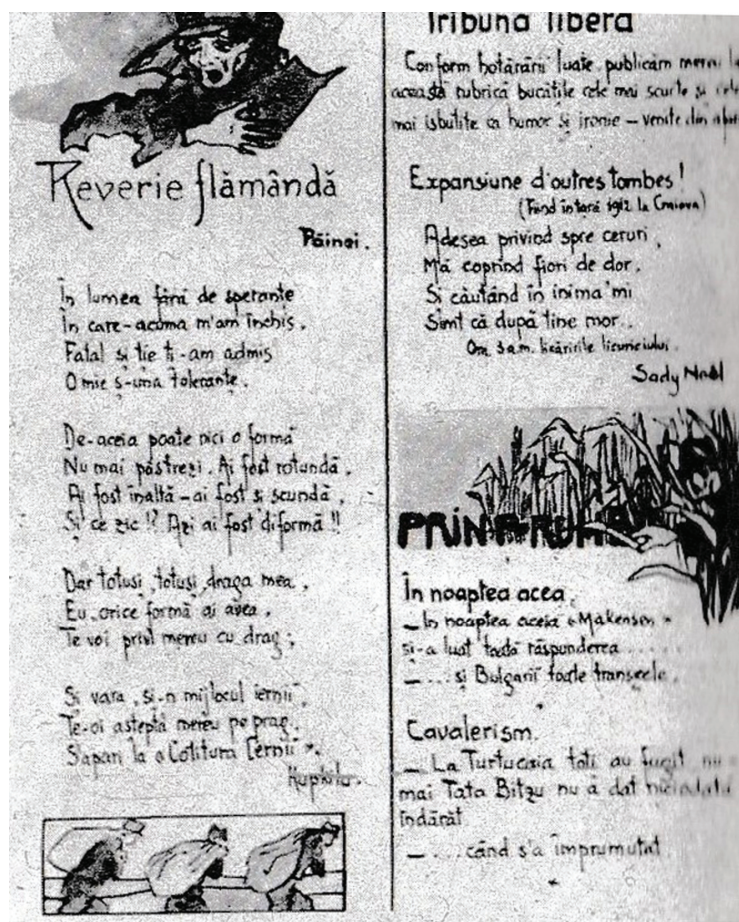 Reverie flămândă
Pâinei.
În lumea fără de speranțe
În care-acuma m'am închis,
Fatal și ție ți-am admis
O mie ș-una toleranțe.
De-aceia poate nici o formă
Nu mai păstrezi. Ai fost rotundă,
Ai fost înaltă – ai fost și scundă,
Și ce zic !? Azi ai fost diformă !!
Dar totuși, totuși, draga mea,
Eu, orice formă ai avea,
Te voi privi mereu cu drag;
Și vara, și-n mijlocul iernii,
Te-oi aștepta mereu pe prag
S'apari la „Cotitura Cernii”.
Tribuna liberă
Conform hotărârii luate, publicăm mereu
această rubrică bucățile cele mai scurte și cele
mai isbutite ca humor și ironie – venite din
Expansiune d'outres tombes!
(Fiind în țară 1912 la Craiova)
Adesea privind spre ceruri,
Mă coprind fiori de dor,
Si căutând în inima'mi
Simt că după tine mor..
licăririle licuriciului.
Sady
PRIN
În noaptea acea.
– In noaptea aceia «Makensen»
și-a luat toată răspunderea.....
–.... și Bulgarii toate tranșeele.
Cavalerism.
– La Turtucaia toți au fugit nu
mai Tata Bitzu nu a dat
îndărăt
–.... când s'a împrumutat